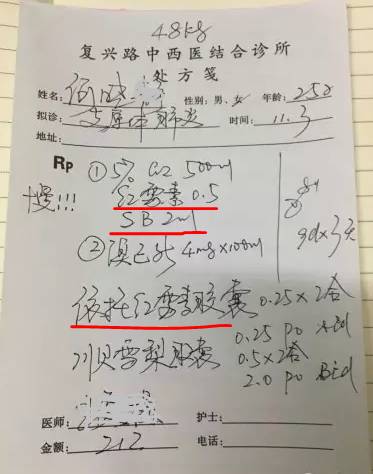 48kg
复兴路中西医结合诊所
处方笺
姓名: 何晓 性别: 男、女 年龄: 25岁
拟诊: 支原体肺炎 时间: 11.3
地址:
Rp
慢!!!
① 5% 500ml
红霉素 0.5
SB 2ml
② 溴己新 4mg×100ml
qd×3天
依托红霉素胶囊 0.25×2合
0.25 po
川贝雪梨胶囊 0.5×2合
2.0 po Bid
医师: 护士:
金额: 212 电话: